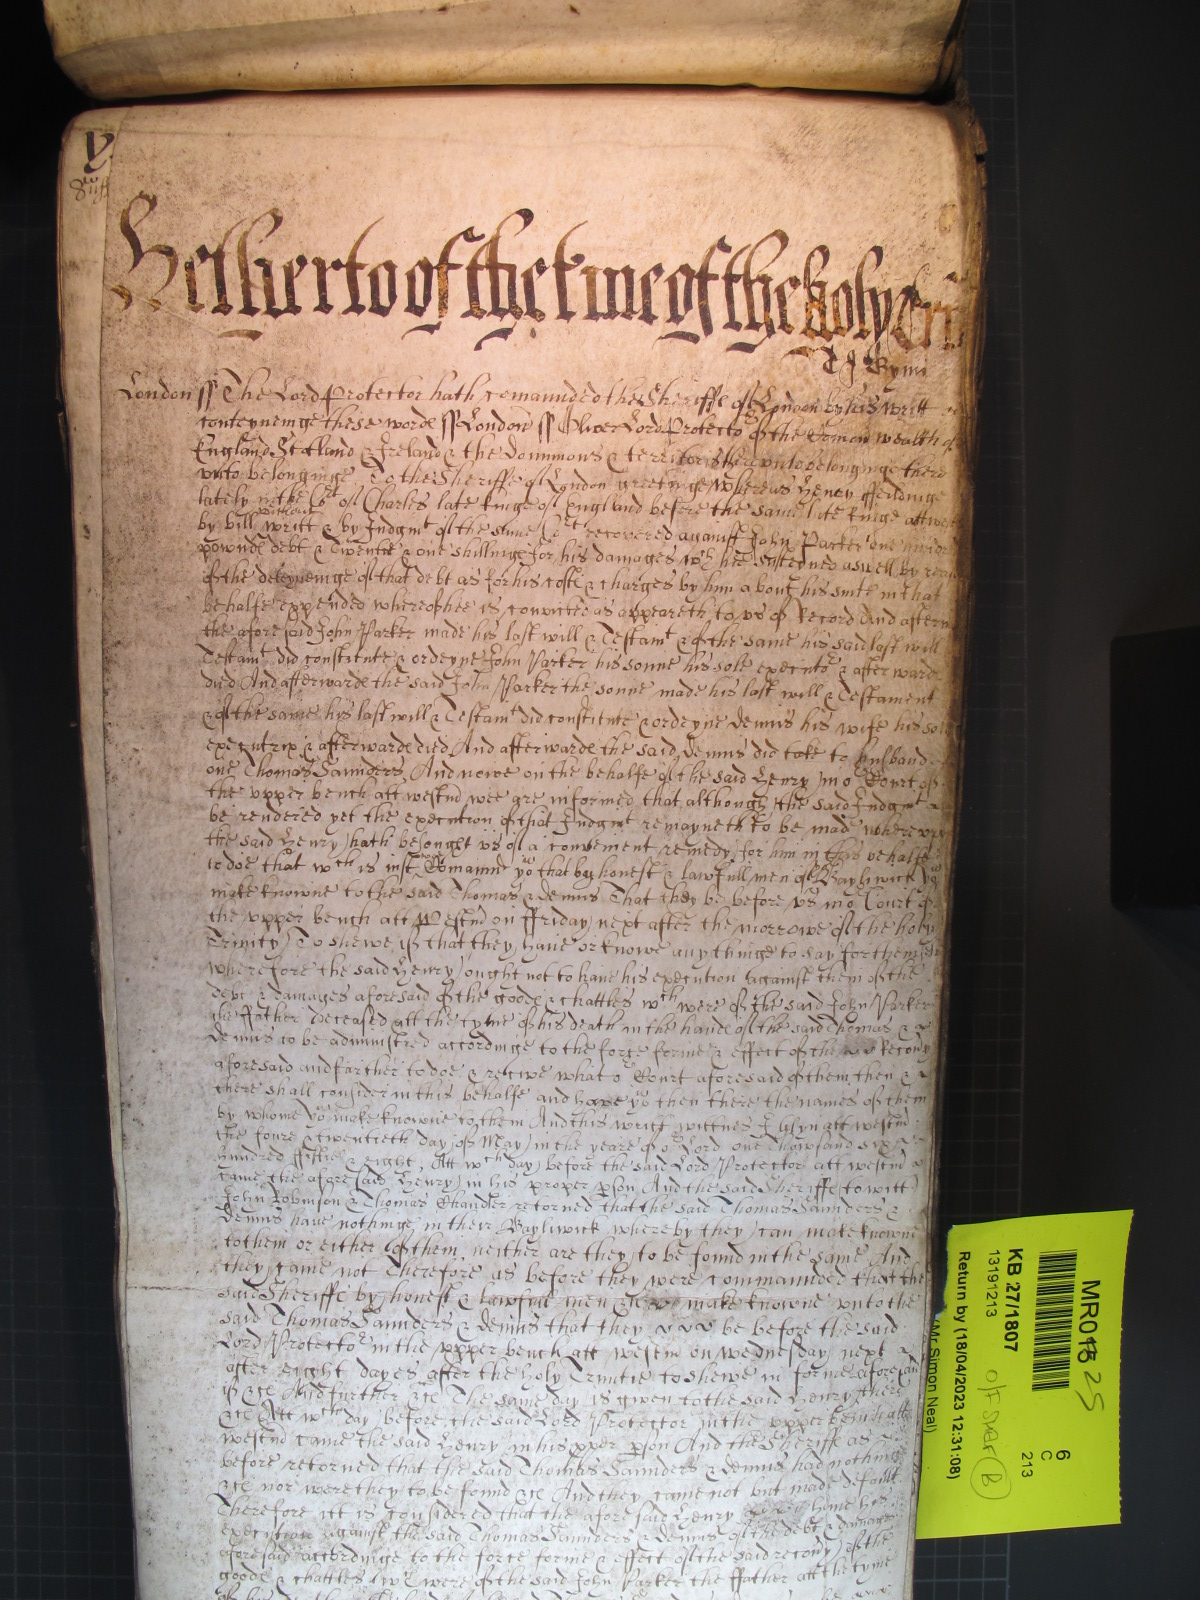 V
Hethertooftheetimeoftheholy Tri
London ss The Lord Protector hath comaunded the Sheriffe of London by his writt
conteyneinge these words ss London ss Oliver Lord Protector of the Comon wealth of
England Scotland & Ireland & the Dominions & territories thereunto belonginge there
unto belonginge To the Sheriffe of London greetinge Whereas Henry
lately in the Cort of Charles late kinge of England before the same late kinge att west
by bill without writt & by Judgmt of the same Cort recovered against John Parker one
pownds debt & Twentie & one shillings for his damages wch hee susteyned aswell by
of the deteyneinge of that debt as for his costs & charges by him about his suite in that
behalfe expended whereof hee is convicted as appeareth to us of Record And afterw
the aforesaid John Parker made his last will & Testamt & of the same his said last will
Testamt did constitute & ordeyne John Parker his sonne his sole executor & afterwards
died And afterwards the said John Parker the sonne made his last will & Testament
& of the same his last will & Testamt did constitute & ordeyne Dennis his wife his sole
executrix & afterwards died And afterwards the said Dennis did take to husband
one Thomas Saunders And nowe on the behalfe of the said Henry in or Court of
the upper bench att westm wee are informed that although the said Judgmt
be rendered yet the execution of that Judgmt remayneth to be made whereupon
the said Henry hath besought us of a convenient remedy for him in this behalfe
to doe that wch is iust Comaund yo that by honest & lawfull men of Bayliwick yo
make knowne to the said Thomas & Dennis That they be before us in or Court of
the upper bench att Westm on Friday next after the morrowe of the holy
Trinity To shewe if that they have or knowe any thinge to say for themselves
wherefore the said Henry ought not to have his execution against them of the
debt & damages aforesaid of the goods & chattles wch were of the said John Parker
the Father deceased att the tyme of his death in the hands of the said Thomas &
Dennis to be administred accordinge to the force forme & effect of the Recovery
aforesaid and further to doe & receive what or Court aforesaid of them then &
there shall consider in this behalfe and have yo then there the names of them
by whome yo make knowne to them And this writt wittnes J Glyn att westm
the foure & twentieth day of May in the yeare of or Lord one Thowsand six
hundred Fiftie & eight, Att wch day before the said Lord Protector att westm
came the aforesaid Henry in his proper pson And the said Sheriffe to witt
John Robinson & Thomas Chandler retorned that the said Thomas Saunders &
Dennis have nothinge in their Bayliwick whereby they can make knowne
to them or either of them neither are they to be found in the same And
they came not Therefore as before they were commaunded that the
said Sheriffe by honest & lawfull men &c make knowne unto the
said Thomas Saunders & Dennis that they be before the said
Lord Protector in the upper bench att westm on wednesday next
after eight dayes after the holy Trinitie to shewe in forme aforesaid
if &c And further &c The same day is given to the said Henry there
&c Att wch day before the said Lord Protector in the upper bench att
westm came the said Henry in his pper pson And the Sheriffe as
before retorned that the said Thomas Saunders & Dennis had nothinge
&c nor were they to be found &c And they came not but made default
Therefore itt is considered that the aforesaid Henry have his
execution against the said Thomas Saunders & Dennis of the debt & damages
aforesaid accordinge to the force forme & effect of the said recovery of the
goods & chattles wch were of the said John Parker the Father att the tyme
MR018 25
6
C
213
KB 27/1807
13191213
Return by (18/04/2023 12:31:08)
(Mr Simon Neal)
B